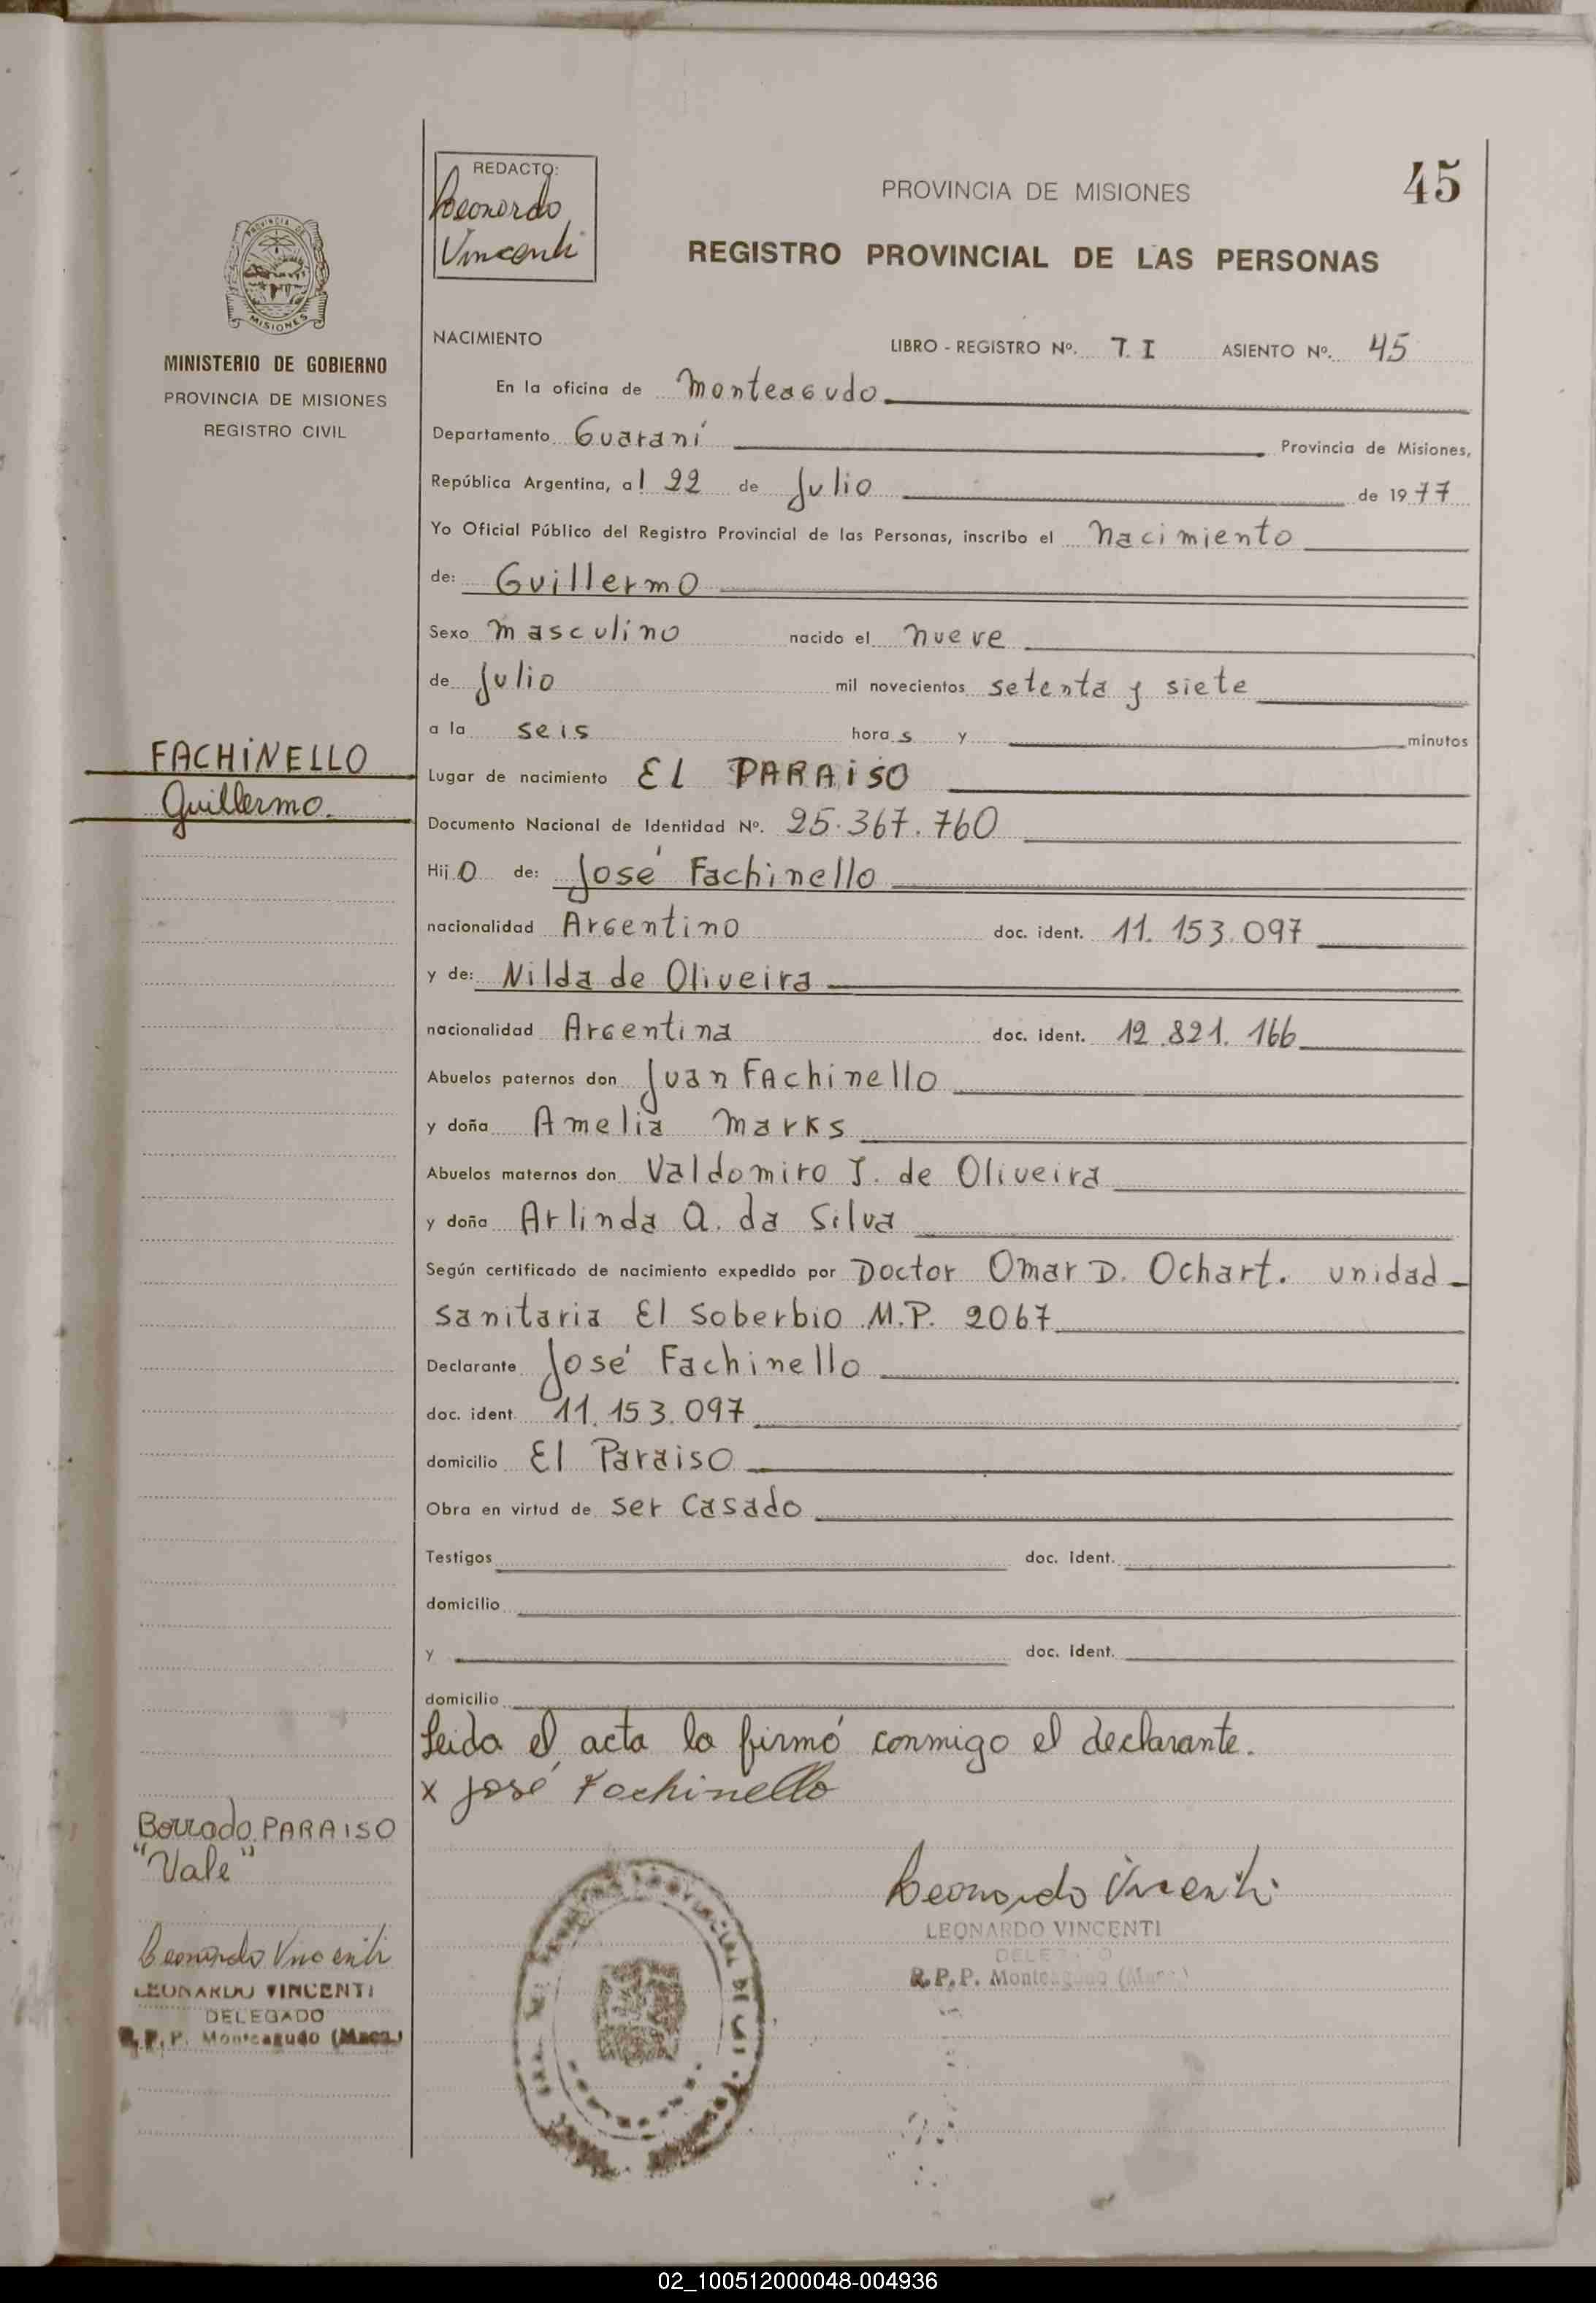 REDACTO:
Leonardo
Vincenti
PROVINCIA DE MISIONES
45
REGISTRO PROVINCIAL DE LAS PERSONAS
PROVINCIA DE
MISIONES
MINISTERIO DE GOBIERNO
PROVINCIA DE MISIONES
REGISTRO CIVIL
NACIMIENTO
LIBRO - REGISTRO Nº. T. I ASIENTO Nº. 45
En la oficina de Monteagudo
Departamento Guaraní Provincia de Misiones,
República Argentina, al 22 de Julio de 1977
Yo Oficial Público del Registro Provincial de las Personas, inscribo el nacimiento
de: Guillermo
Sexo masculino nacido el nueve
de Julio mil novecientos setenta y siete
a la seis horas y minutos
FACHINELLO
Guillermo.
Lugar de nacimiento EL PARAISO
Documento Nacional de Identidad Nº. 25.367.760
Hijo de: José Fachinello
nacionalidad Argentino doc. ident. 11.153.097
y de: Nilda de Oliveira
nacionalidad Argentina doc. ident. 12.821.166
Abuelos paternos don Juan FAchinello
y doña Amelia Marks
Abuelos maternos don Valdomiro J. de Oliveira
y doña Arlinda A. da Silva
Según certificado de nacimiento expedido por Doctor Omar D. Ochart. unidad
sanitaria El Soberbio M.P. 2067
Declarante José Fachinello
doc. ident. 11.153.097
domicilio El Paraiso
Obra en virtud de ser casado
Testigos doc. ident.
domicilio
y doc. ident.
domicilio
Leida el acta la firmó conmigo el declarante.
x José Fachinello
Borrado PARAISO
"Vale"
Leonardo Vincenti
LEONARDO VINCENTI
DELEGADO
R.P.P. Monteagudo (Mnes.)
Leonardo Vincenti
LEONARDO VINCENTI
DELEGADO
R.P.P. Monteagudo (Mnes.)
02_100512000048-004936